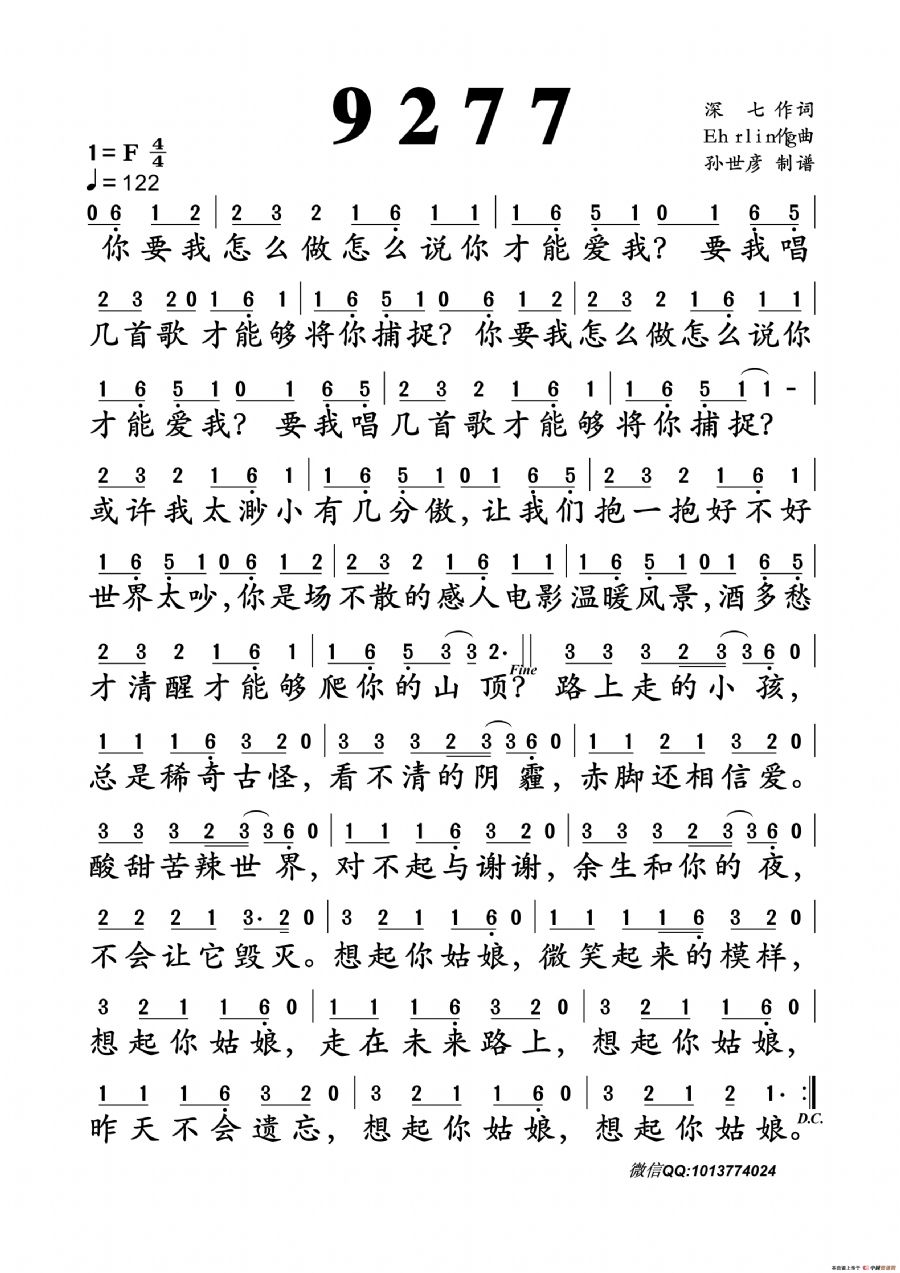 9277
深 七 作词
Ehrling作曲
孙世彦 制谱
1=F 4/4
♩=122
0 6 1 2 | 2 3 2 1 6 1 1 | 1 6 5 1 0 1 6 5 |
你要我怎么做怎么说你才能爱我? 要我唱
2 3 2 0 1 6 1 | 1 6 5 1 0 6 1 2 | 2 3 2 1 6 1 1 |
几首歌 才能够将你捕捉? 你要我怎么做怎么说你
1 6 5 1 0 1 6 5 | 2 3 2 1 6 1 | 1 6 5 1 1 - |
才能爱我? 要我唱几首歌才能够将你捕捉?
2 3 2 1 6 1 | 1 6 5 1 0 1 6 5 | 2 3 2 1 6 1 |
或许我太渺小有几分傲,让我们抱一抱好不好
1 6 5 1 0 6 1 2 | 2 3 2 1 6 1 1 | 1 6 5 1 0 1 6 5 |
世界太吵,你是场不散的感人电影温暖风景,酒多愁
2 3 2 1 6 1 | 1 6 5 3 3 2· || 3 3 3 2 3 3 6 0 |
Fine
才清醒才能够爬你的山顶? 路上走的小孩,
1 1 1 6 3 2 0 | 3 3 3 2 3 3 6 0 | 1 1 2 1 3 2 0 |
总是稀奇古怪,看不清的阴霾,赤脚还相信爱。
3 3 3 2 3 3 6 0 | 1 1 1 6 3 2 0 | 3 3 3 2 3 3 6 0 |
酸甜苦辣世界,对不起与谢谢,余生和你的夜,
2 2 2 1 3· 2 0 | 3 2 1 1 6 0 | 1 1 1 1 6 3 2 0 |
不会让它毁灭。想起你姑娘,微笑起来的模样,
3 2 1 1 6 0 | 1 1 1 6 3 2 0 | 3 2 1 1 6 0 |
想起你姑娘,走在未来路上,想起你姑娘,
1 1 1 6 3 2 0 | 3 2 1 1 6 0 | 3 2 1 2 1· :||
D.C.
昨天不会遗忘,想起你姑娘,想起你姑娘。
微信QQ:1013774024